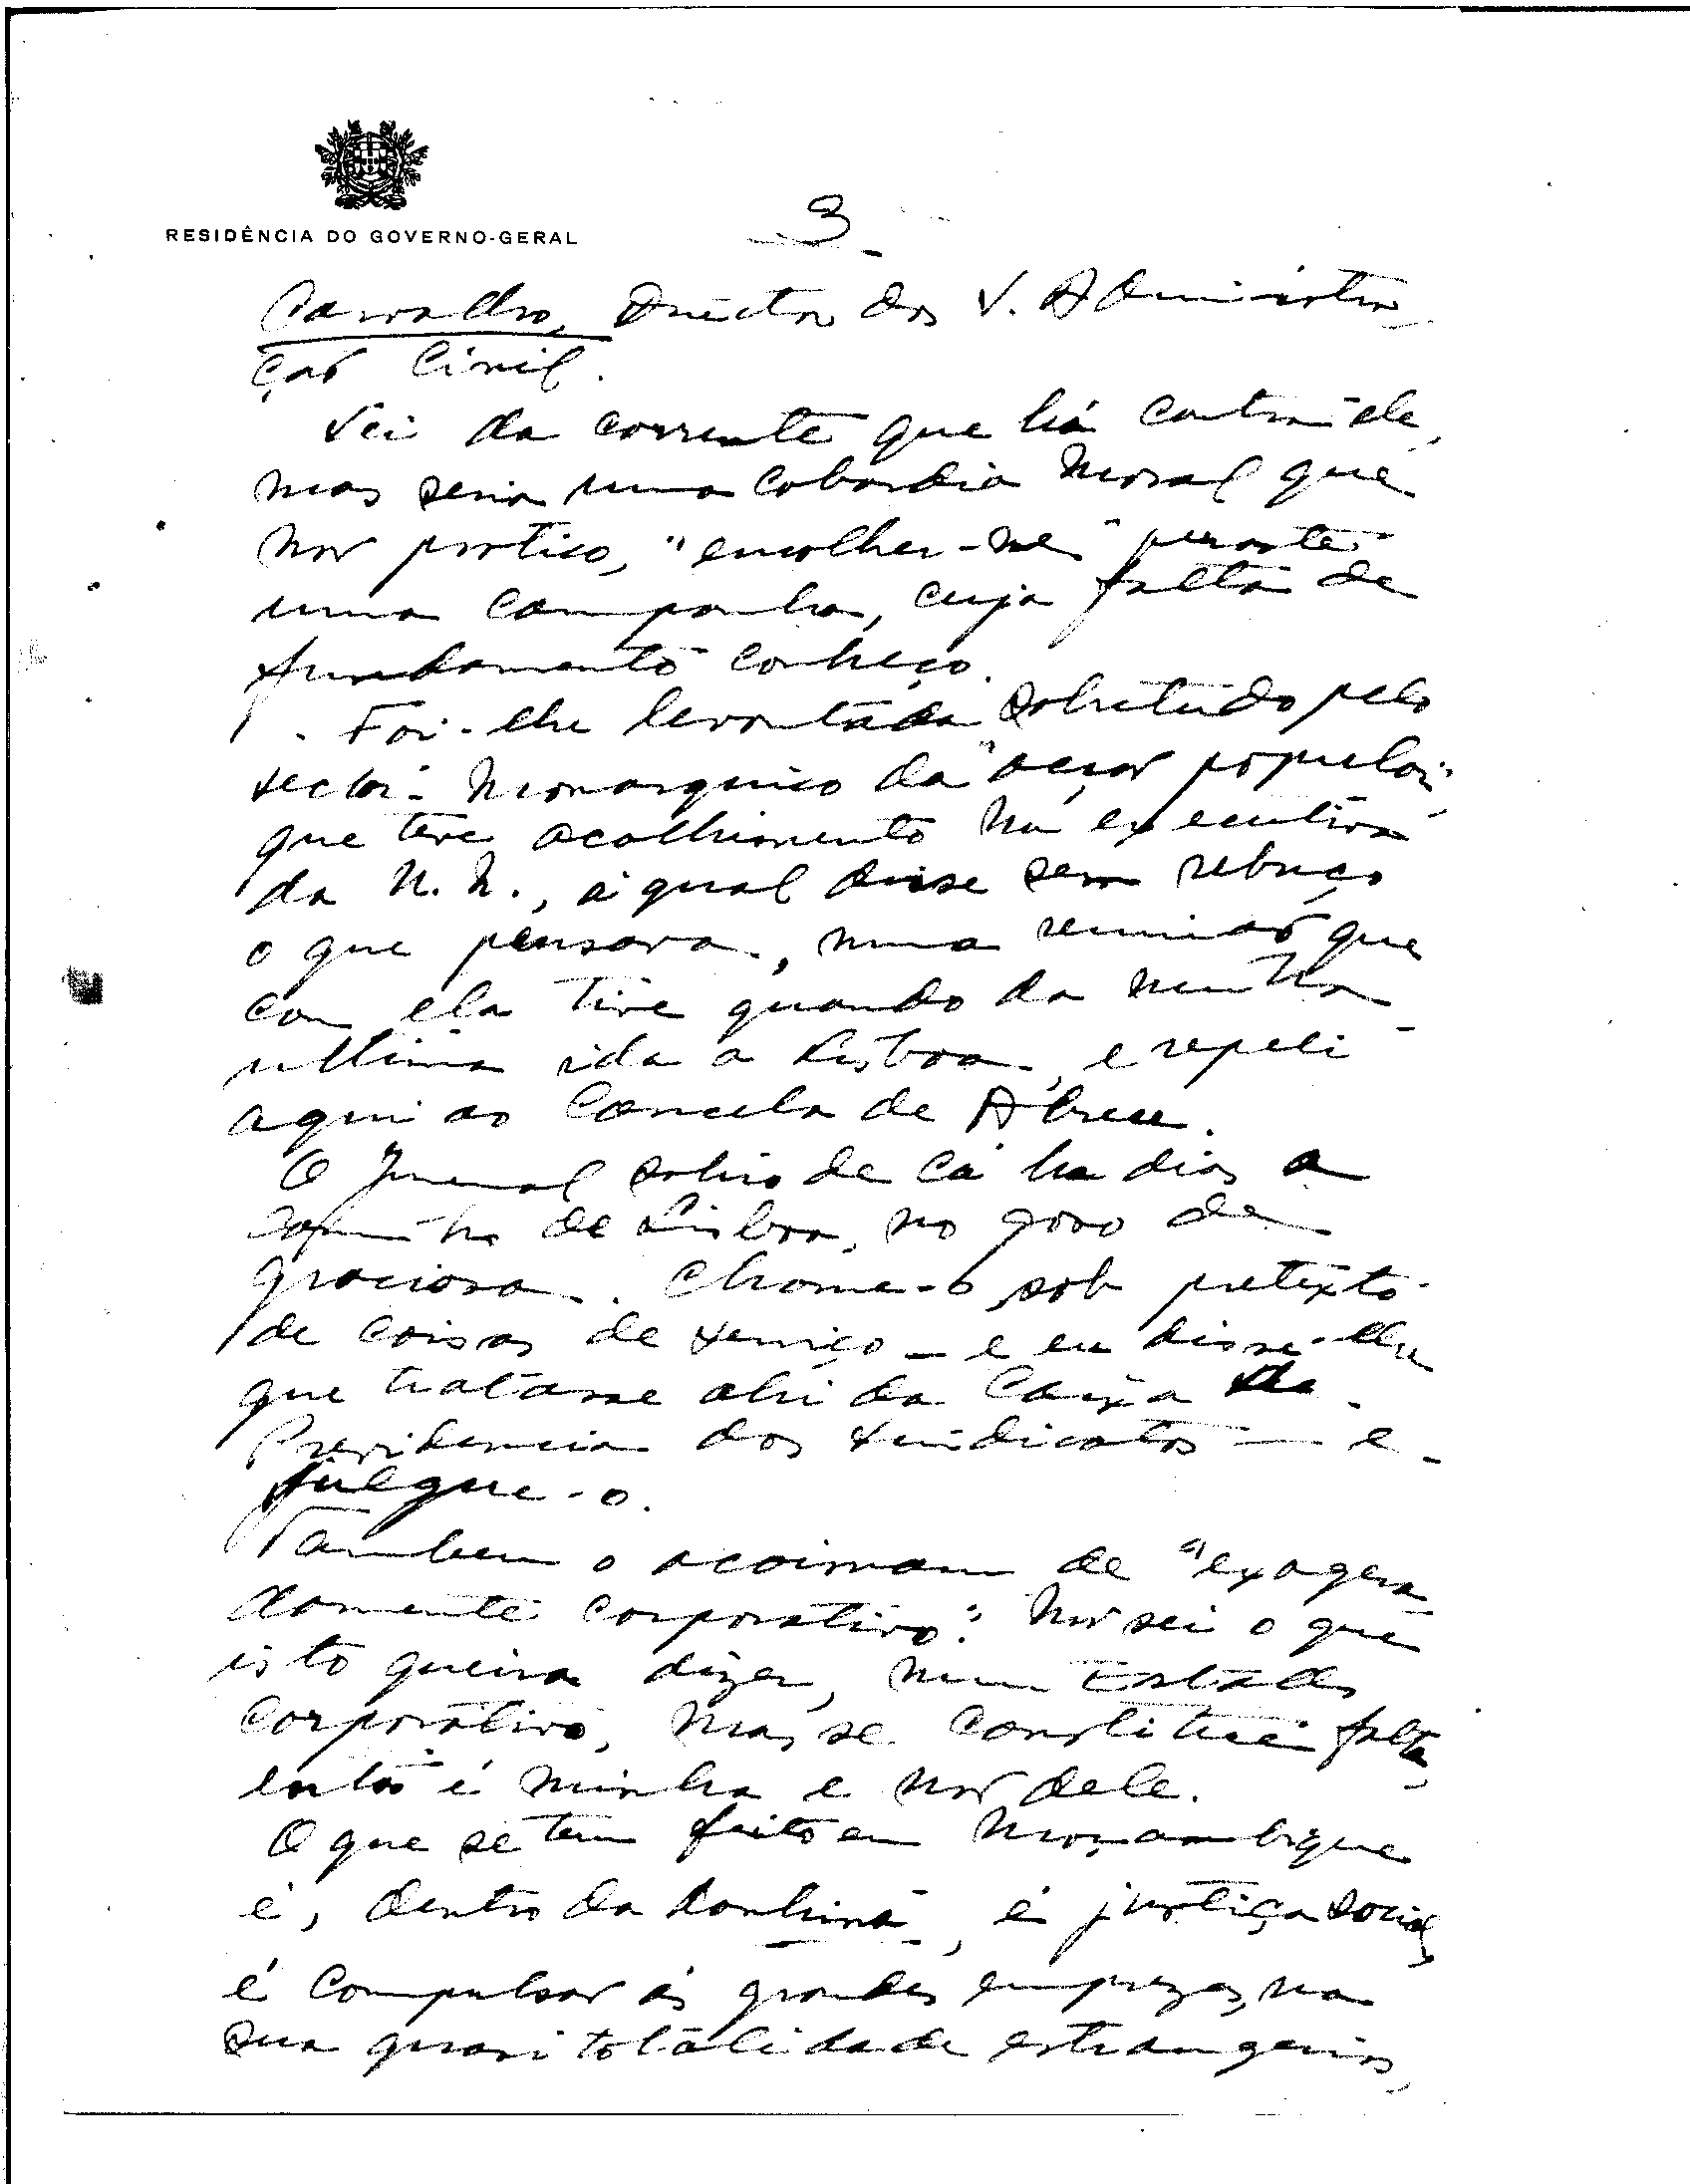 RESIDÊNCIA DO GOVERNO-GERAL
3
Carvalho, Director dos S. Administra
ção Civil.
Sei da corrente que há contra ele,
mas seria uma cobardia moral que
não pratico, "encolher-me" perante
uma campanha, cuja falta de
fundamento conheço.
Foi-lhe levantada sobretudo pelo
sector monarquico da "acção popular"
que teve acolhimento na executiva
da U. N., à qual disse sem rebuço
o que pensava, numa reunião que
com ela tive quando da minha
ultima ida a Lisboa, e repeti
aqui ao Cancela de Abreu.
O Juvenal sahio de cá ha dias a
caminho de Lisboa, no goso de
graciosa. Chame-o sob pretexto
de coisas de serviço — e eu disse-lhe
que tratasse ahi da Caixa de
Previdencia dos Sindicatos — e
julgue-o.
Tambem o acoimam de "exagera
damente corporativo". Não sei o que
isto queira dizer, num Estado
Corporativo, mas se constitue falta,
então é minha e não dele.
O que se tem feito em Moçambique
é, dentro da doutrina, é justiça social,
é compulsar as grandes emprezas, na
sua quasi totalidade estrangeiras,